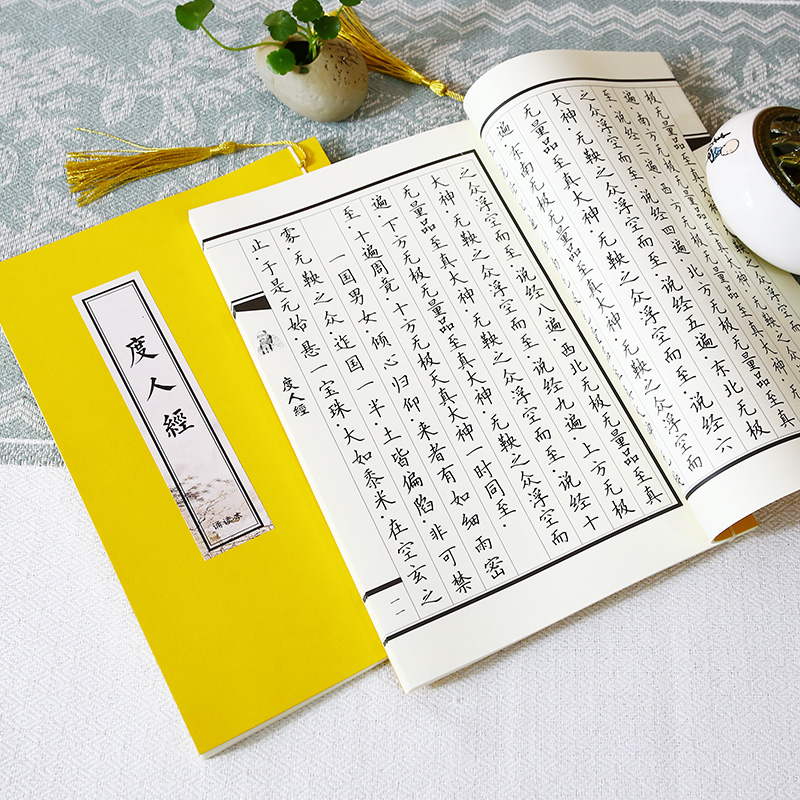 极无量品至真
遍·南方无极无量品至真
至·说经三遍·西方无极无量品至真
之众浮空而至·说经四遍·北方无极无量品至真
大神·无鞅之众浮空而至·说经五遍·东北无极
无量品至真大神·无鞅之众浮空而至·说经六
遍·东南无极无量品至真大神·无鞅之众浮空而
之众浮空而至·说经八遍·西北无极无量品至真
大神·无鞅之众浮空而至·说经九遍·上方无极
无量品至真大神·无鞅之众浮空而至·说经十
遍·下方无极无量品至真大神·无鞅之众浮空而
至·十遍周竟·十方无极天真大神一时同至·
一国男女·倾心归仰·来者有如细雨密
雾·无鞅之众·迮国一半·土皆偏陷·非可禁
止·于是元始悬一宝珠·大如黍米·在空玄之
度人經
二
度人經
诵读本